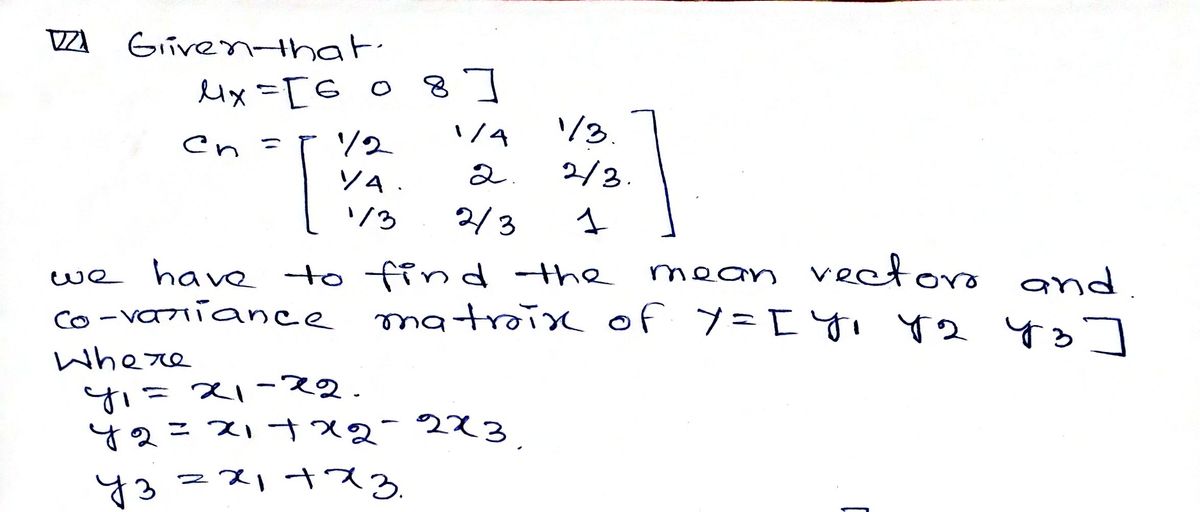 VII Given that.
μx = [6 0 8]
Cn = [ 1/2 1/4 1/3.
1/4. 2. 2/3.
1/3 2/3 1 ]
we have to find the mean vector and.
co-variance matrix of y = [y1 y2 y3]
Where
y1 = x1 - x2.
y2 = x1 + x2 - 2x3.
y3 = x1 + x3.